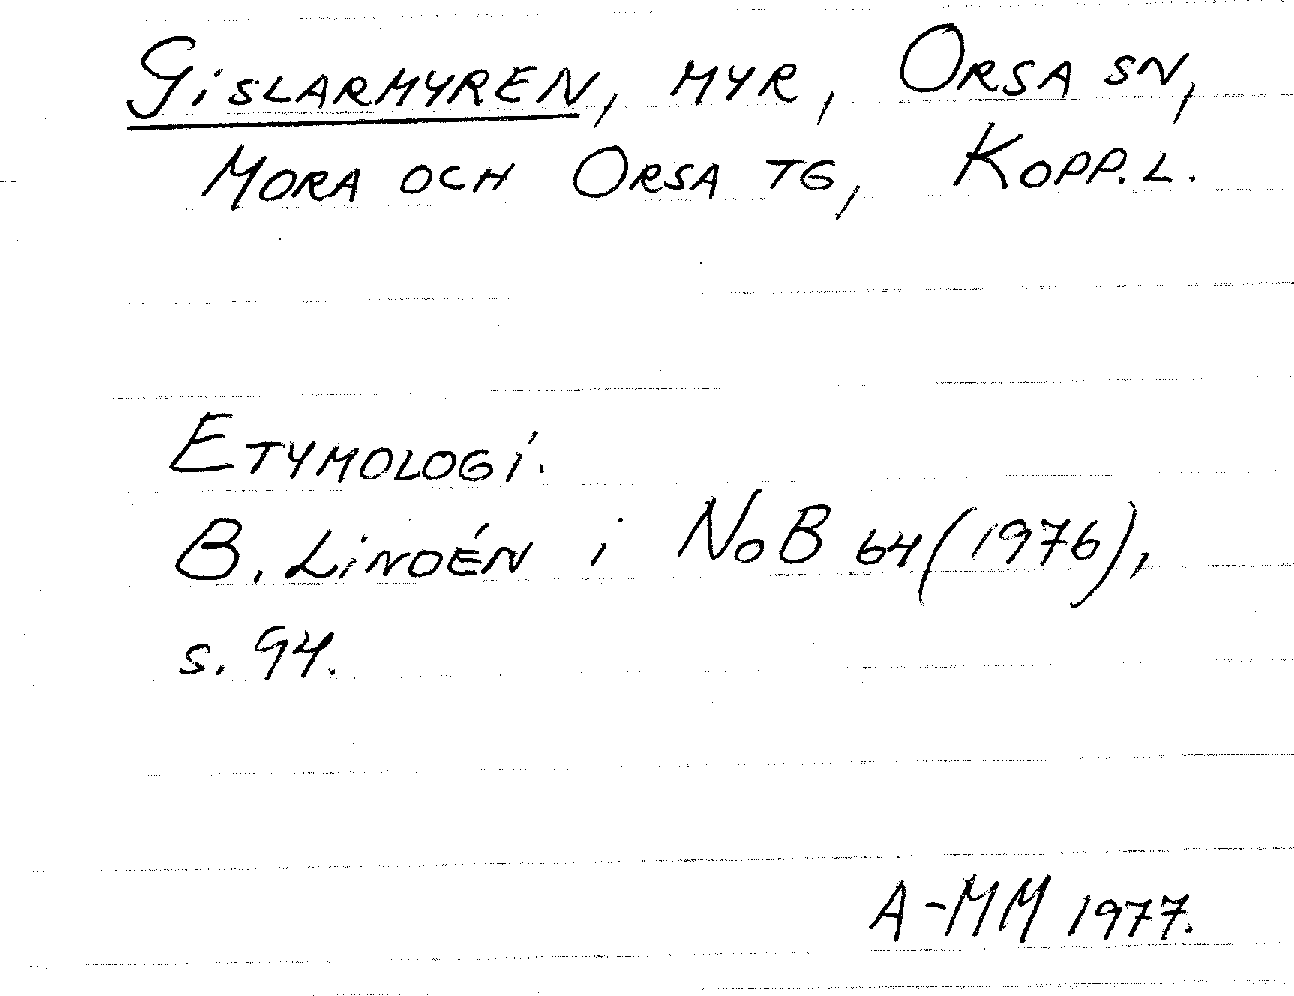 Gislarmyren, myr, Orsa sn,
Mora och Orsa tg, Kopp.l.
Etymologi.
B. Lindén i NoB 64 (1976),
s. 94.
A-MM 1977.